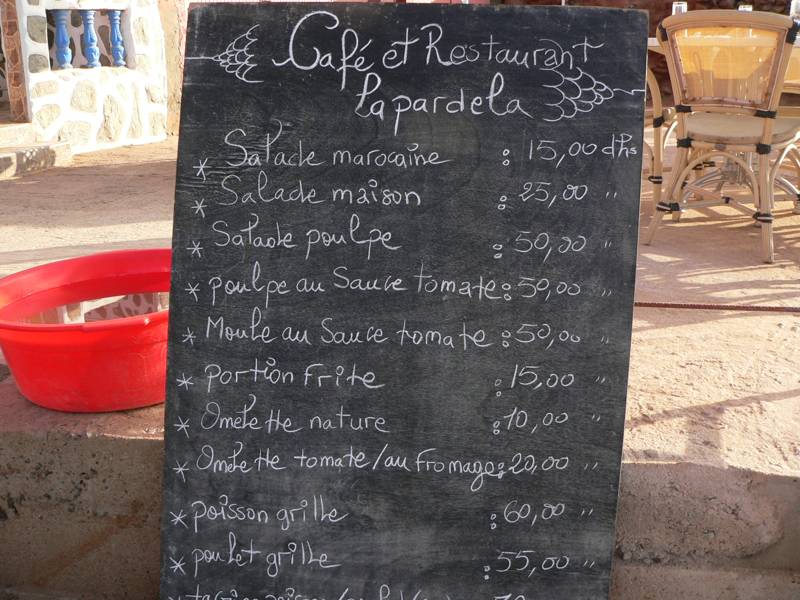 Café et Restaurant
lapardela
* Salade marocaine : 15,00 dhs
* Salade maison : 25,00 "
* Salade poulpe : 50,00 "
* poulpe au Sauce tomate : 50,00 "
* Moule au Sauce tomate : 50,00 "
* portion Frite : 15,00 "
* Omelette nature : 10,00 "
* Omelette tomate/au Fromage : 20,00 "
* poisson grille : 60,00 "
* poulet grille : 55,00 "